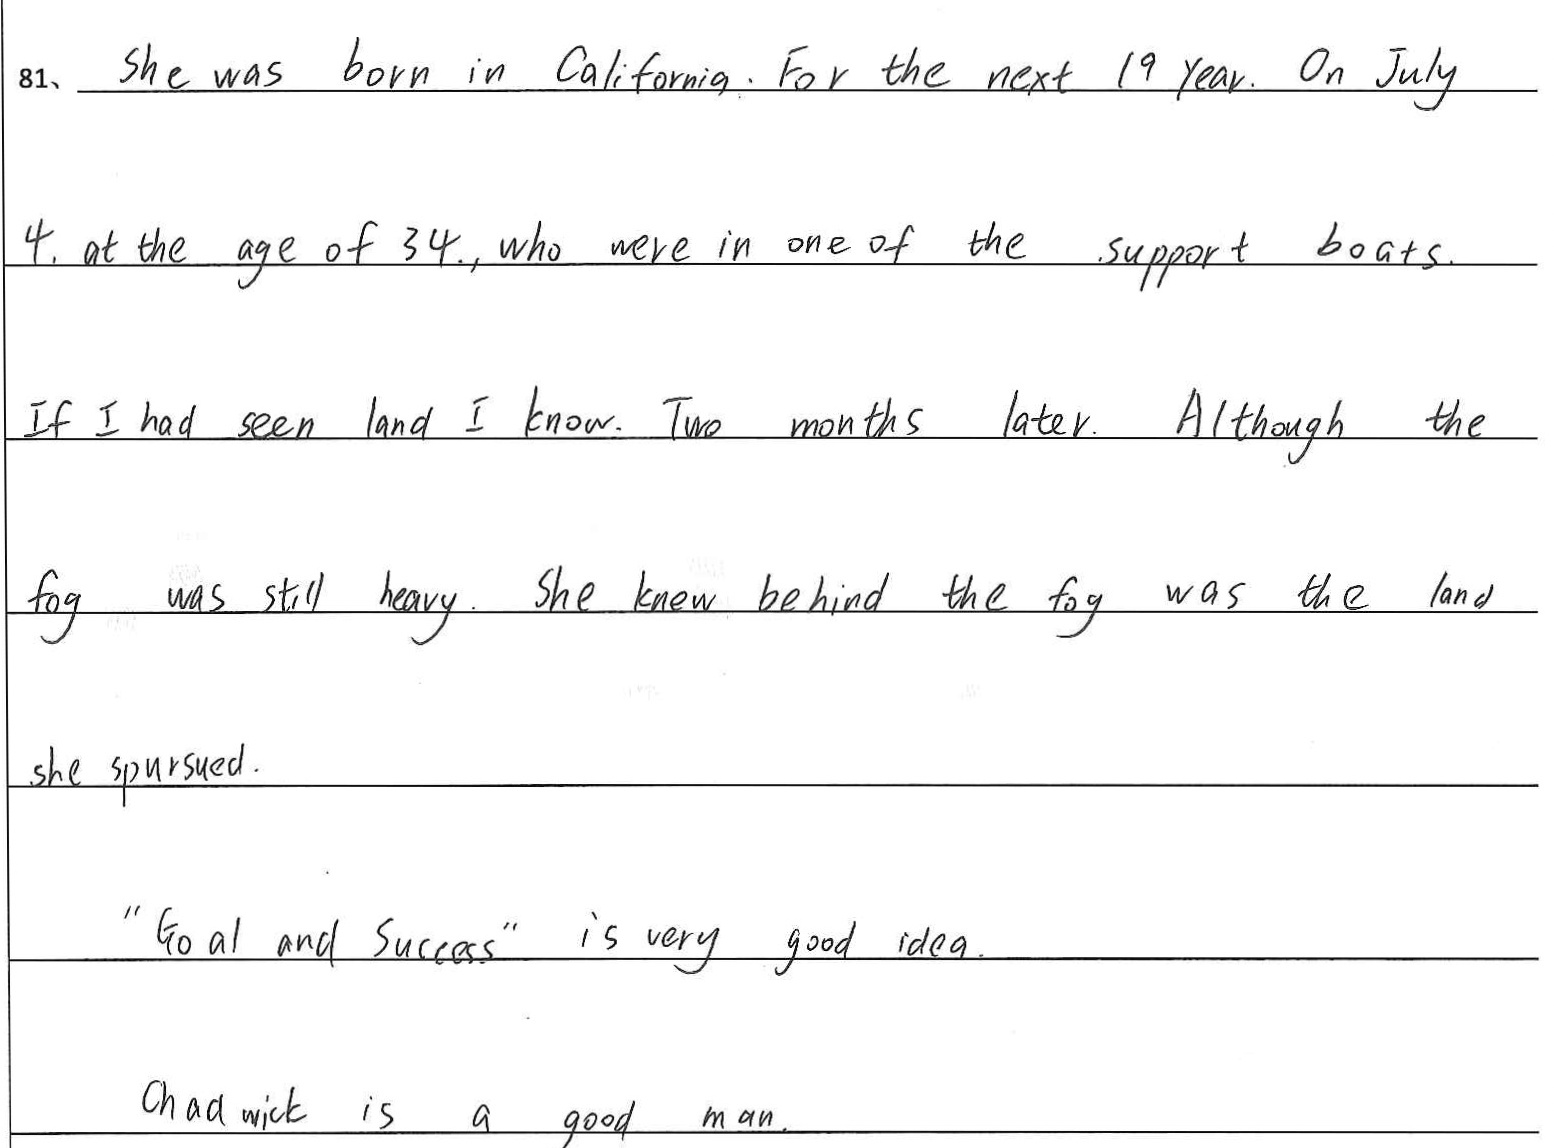 81、 She was born in California. For the next 19 year. On July
4. at the age of 34., who were in one of the support boats.
If I had seen land I know. Two months later. Although the
fog was still heavy. She knew behind the fog was the land
she spursued.
"Goal and Success" is very good idea.
Chadwick is a good man.